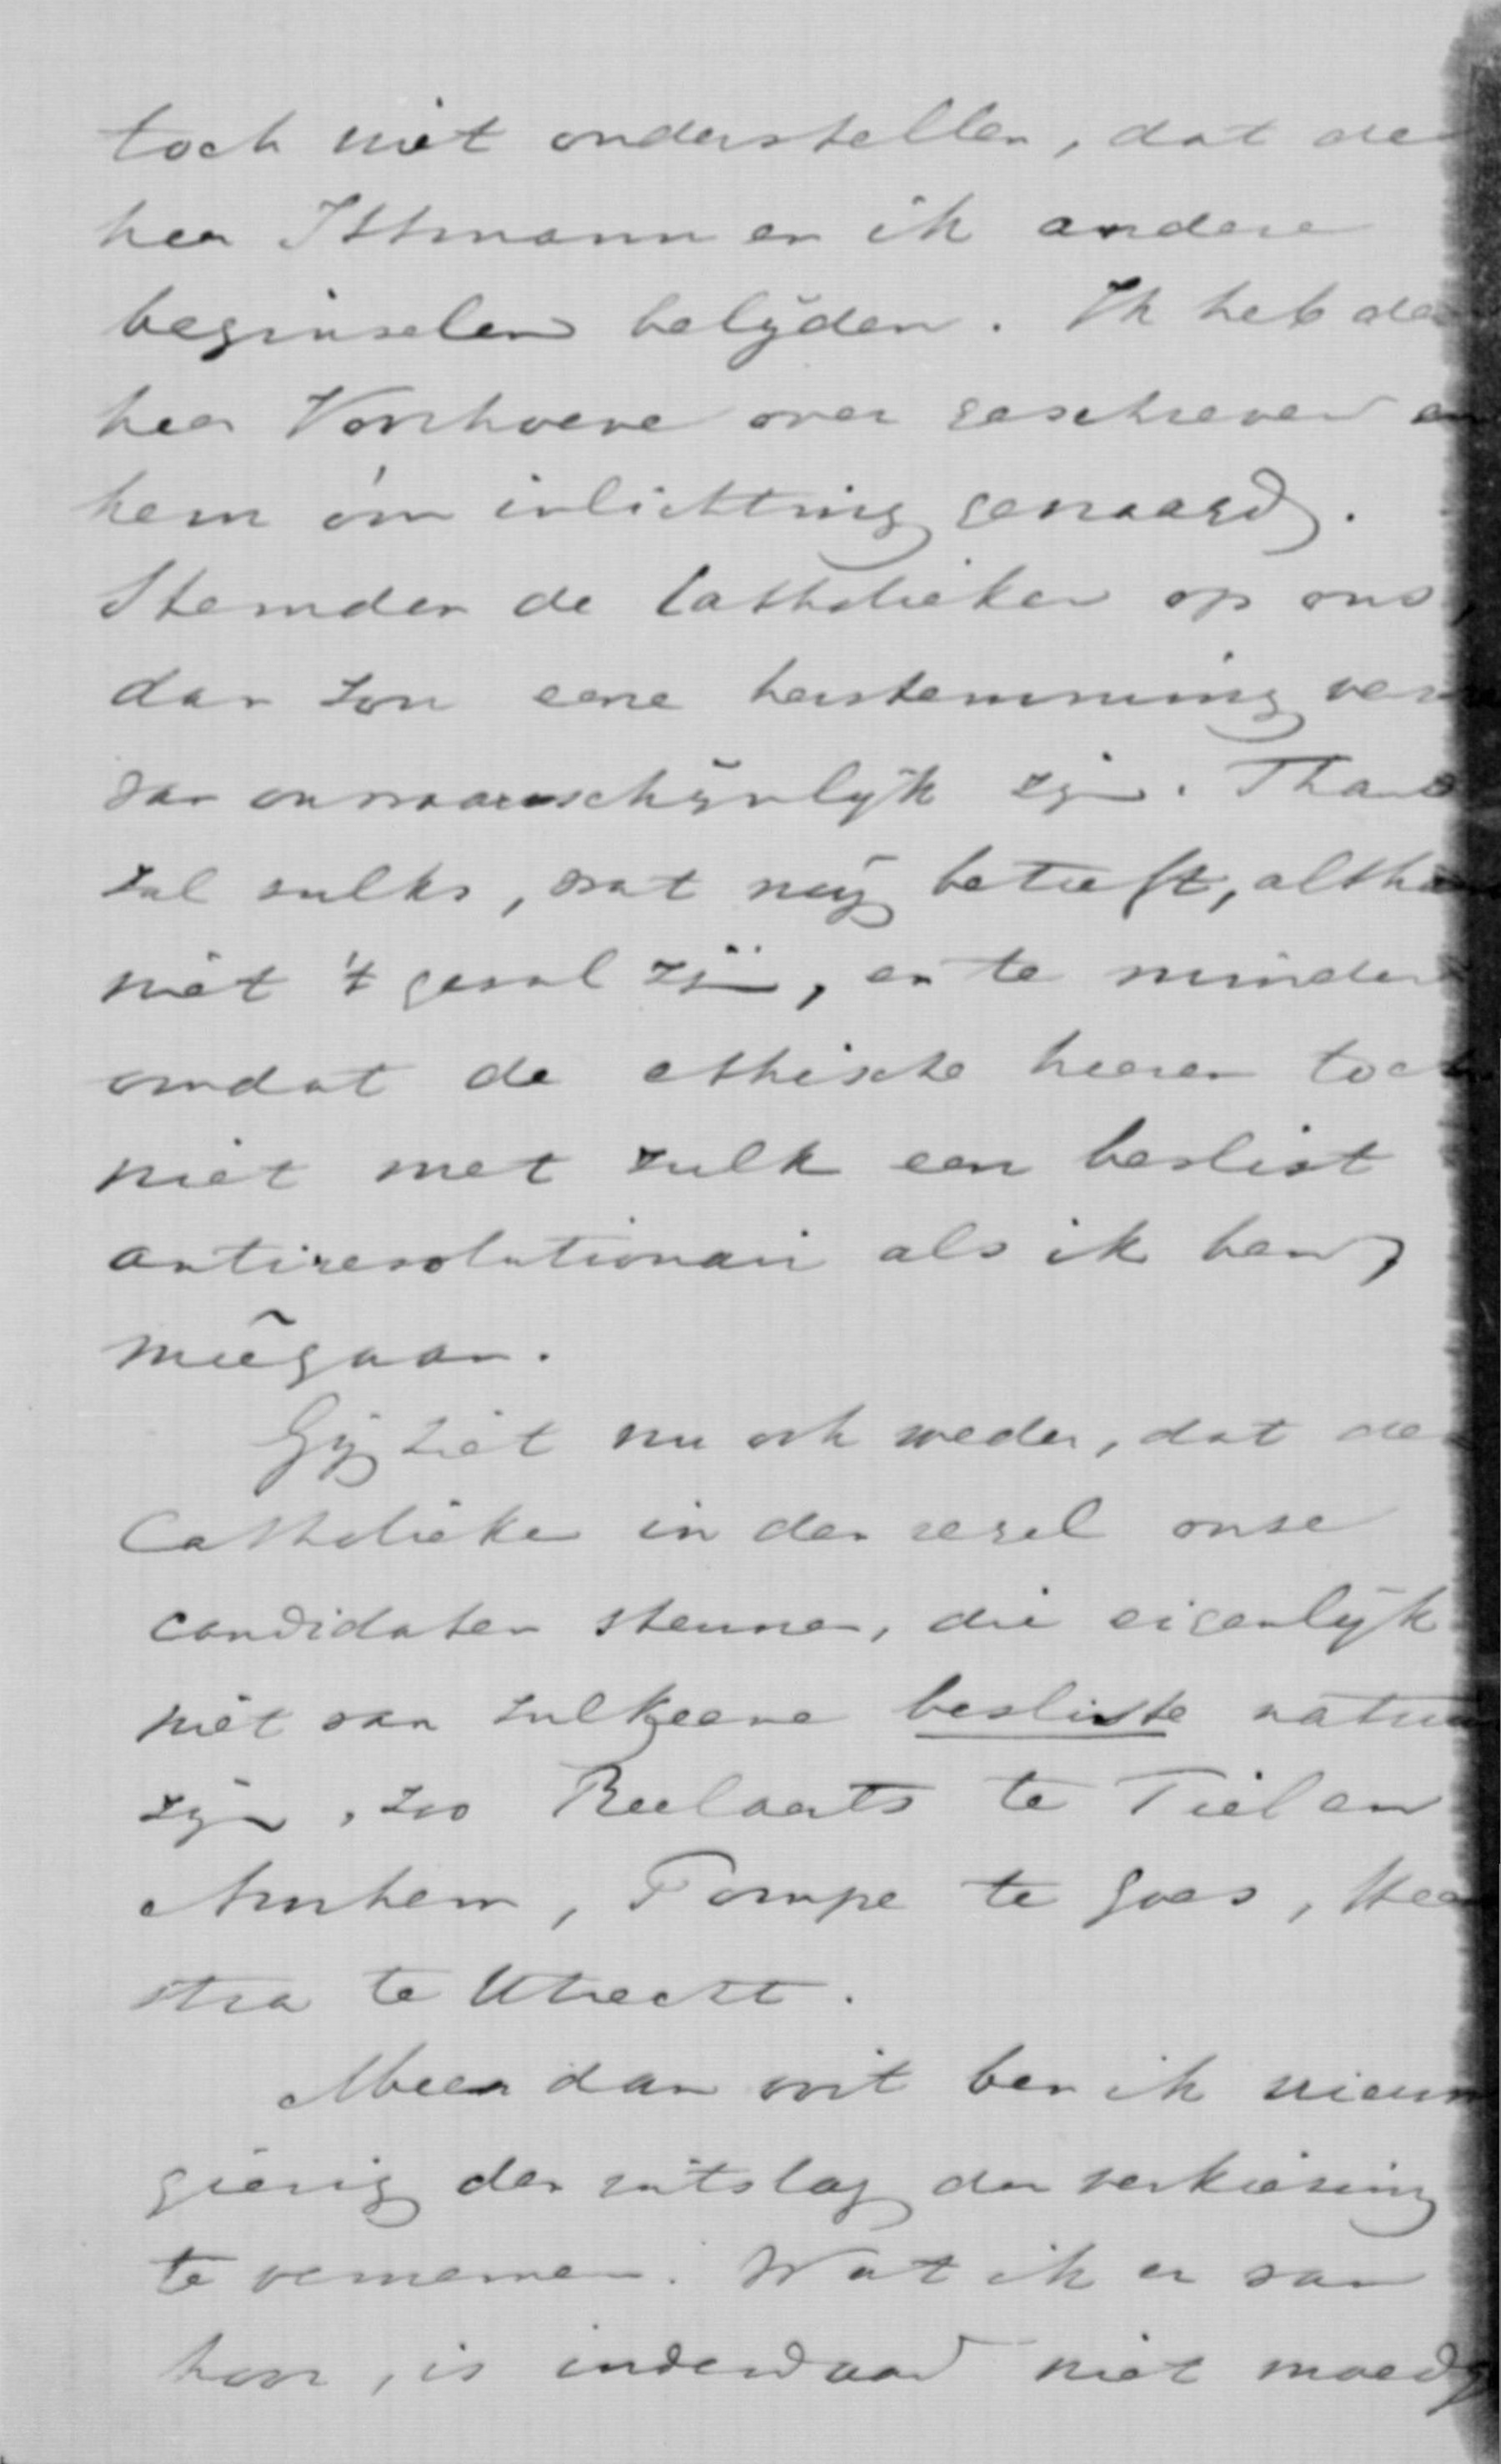 toch niet onderstellen, dat de
heer Ittmann en ik andere
beginselen belijden. Ik heb den
heer Voorhoeve over geschreven en
hem óm inlichting gevraagd.
Stemden de Catholieken op ons,
dan zou eene herstemming ver
van onwaarschijnlijk zijn. Thans
zal zulks, wat mij betreft, altha
niet 't geval zijn, en te minder
omdat de ethische heeren toch
niet met zulk een beslist
antirevolutionair als ik ben,
meêgaan.
Gij ziet nu ook weder, dat de
Catholieke in den regel onze
candidaten steunen, die eigenlijk
niet van zulkeene besliste natuur
zijn, zoo Beelaerts te Tiel en
Arnhem, Pompe te Goes, Hee
stra te Utrecht.
Meer dan ooit ben ik nieuw
gierig den uitslag der verkiezing
te vernemen. Wat ik er van
hoor, is inderdaad niet moedg